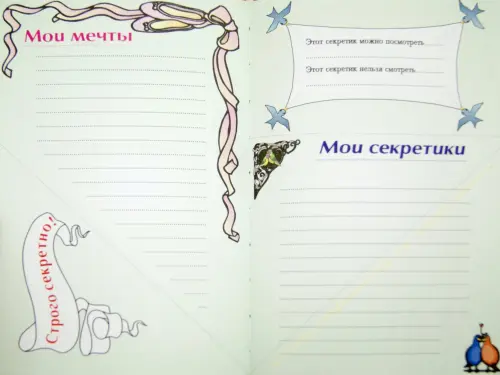 Мои мечты
Строго секретно!
Этот секретик можно посмотреть
Этот секретик нельзя смотреть
Мои секретики